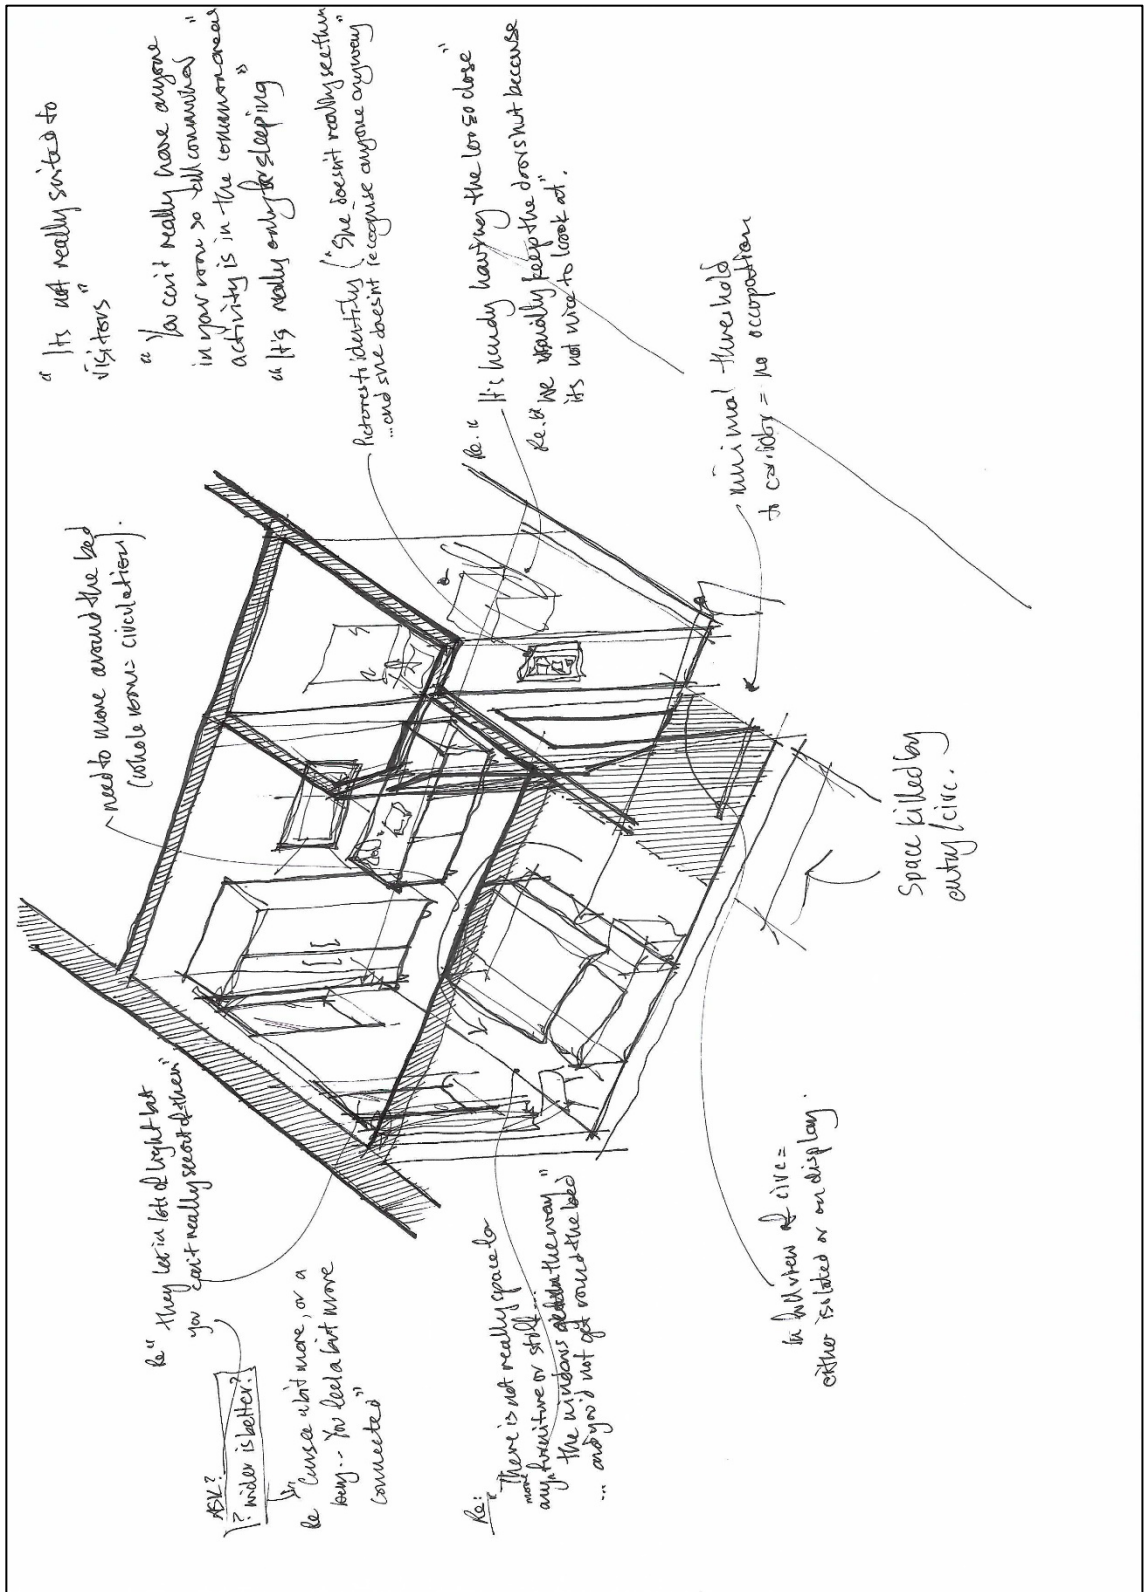 "Its not really suited to
visitors"
"You can't really have anyone
in your room so all communal
activity is in the common areas"
"It's really only for sleeping"
Pictures to identity ("She doesn't really see them
...and she doesn't recognise anyone anyway"
Re. "It's handy having the loo so close"
Re. "We usually keep the door shut because
its not nice to look at".
minimal threshold
to corridor = no occupation
need to move around the bed
(whole room = circulation).
Space killed by
entry/circ.
Re "they let in lots of light but
you can't really see out of them"
ASK?
? wider is better?
Re "Can see a bit more, or a
bay... You feel a bit more
connected"
Re: "There is not really space for
more
any furniture or stuff...
the windows in the way"
... and you'd not get round the bed
In full view of circ =
either isolated or on display.